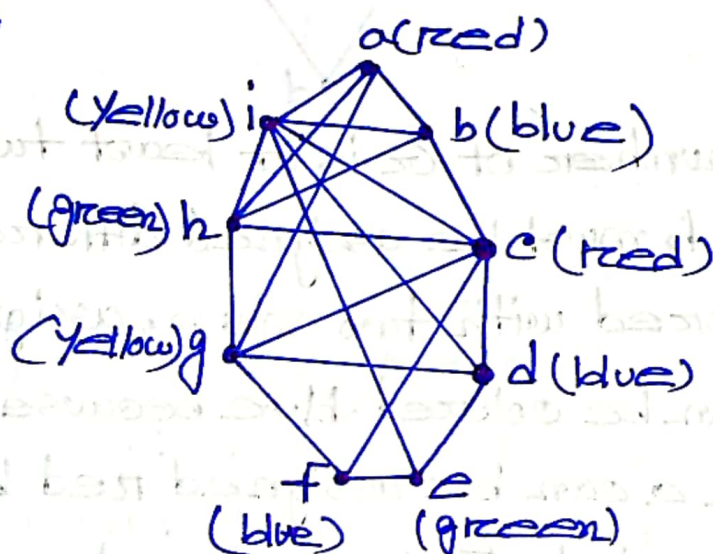 a(red)
(Yellow) i
b(blue)
(green) h
c(red)
(Yellow) g
d(blue)
f
e
(blue)
(green)